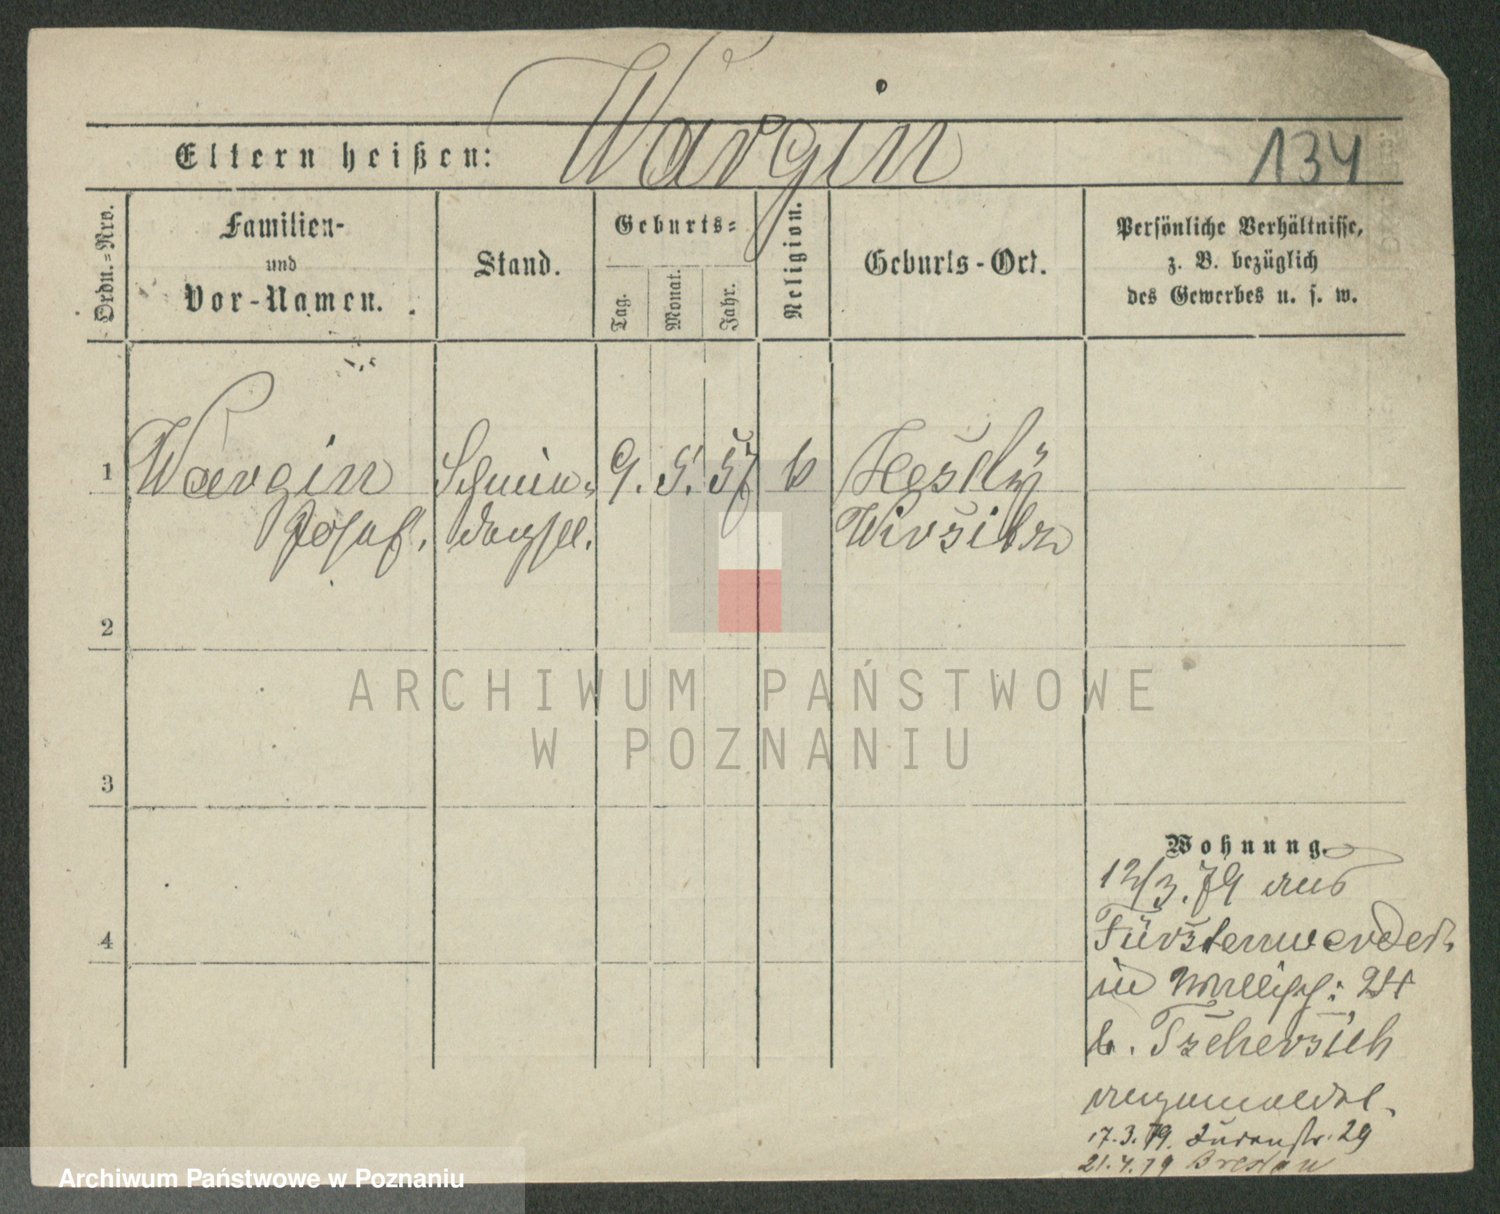 Wargin
Eltern heißen:
134
Ordn.-Nro.
Familien-
und
Vor-Namen.
Stand.
Geburts-
Tag.
Monat.
Jahr.
Religion.
Geburts-Ort.
Persönliche Verhältnisse,
z. B. bezüglich
des Gewerbes u. s. w.
1
Wargin
Josef.
Schnei-
dergsell.
9. 5. 57
Wirsitz
2
ARCHIWUM PAŃSTWOWE
W POZNANIU
3
Wohnung.
12/3. 79 aus
Fürstenwerder
in Wallisch: 24
b. Tschersich
angemeldet.
17.3.79. Judenstr. 29
21.4.79 Breslau
4
Archiwum Państwowe w Poznaniu